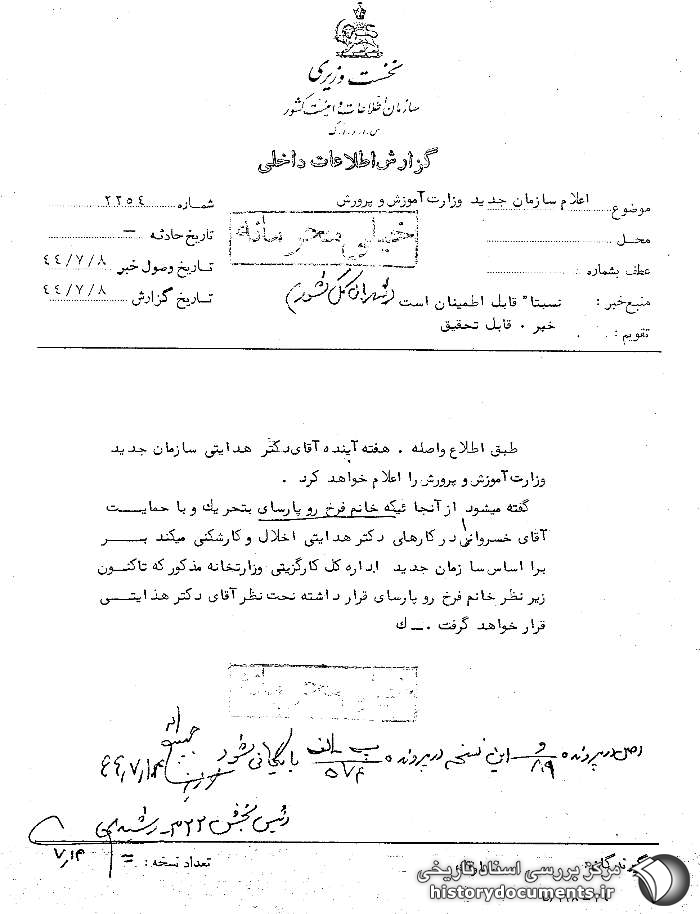 نخست وزیری
سازمان اطلاعات و امنیت کشور
س.ا.و.ا.ک
گزارش اطلاعات داخلی
موضوع اعلام سازمان جدید وزارت آموزش و پرورش
شماره ٢٢٥٤
محل
تاریخ حادثه =
عطف بشماره :
تاریخ وصول خبر ٤٤/٧/٨
منبع خبر : نسبتا" قابل اطمینان است
تاریخ گزارش ٤٤/٧/٨
تقویم : خبر . قابل تحقیق
خیلی محرمانه
طبق اطلاع واصله . هفته آینده آقای دکتر هدایتی سازمان جدید
وزارت آموزش و پرورش را اعلام خواهد کرد .
گفته میشود از آنجا ئیکه خانم فرخ رو پارسای بتحریك و با حمایت
آقای خسروانی در کارهای دکتر هدایتی اخلال و کارشکنی میکند بر
برا اساس سا زمان جدید اداره کل کارگزینی وزارتخانه مذکور که تاکنون
زیر نظر خانم فرخ رو پارسای قرار داشته تحت نظر آقای دکتر هدایتی
قرار خواهد گرفت .ـ ك
خیلی محرمانه
اصل در پرونده و ٨٩ و این نسخه در پرونده پ الف ٥٧٤ بایگانی شود
رئیس بخش ٣٢٢ رشیدی
تعداد نسخه : =
مرکز بررسی اسناد تاریخی
historydocuments.ir